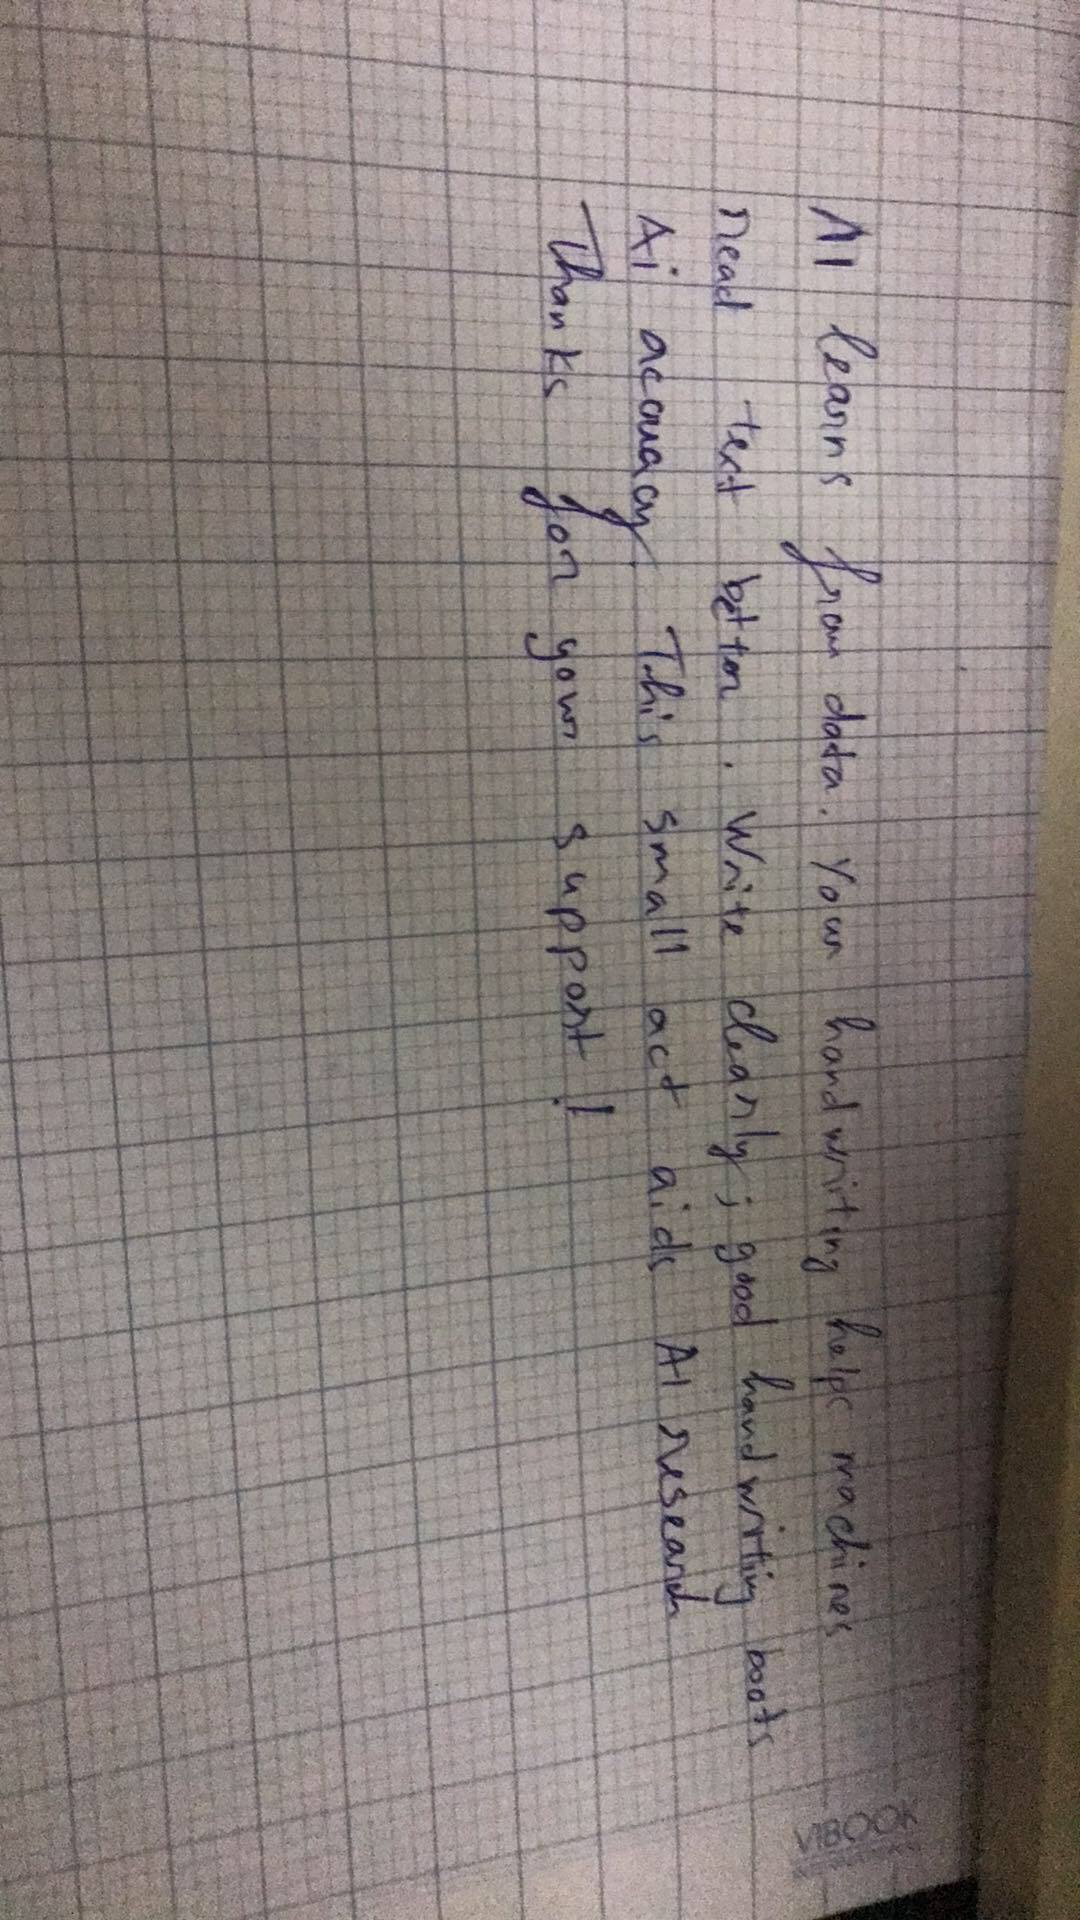 AI learns from data. Your handwriting helps machines
read text better. Write clearly; good handwriting boots
Ai accuracy. This small act aids AI research
Thanks for your support!
VIBOOK